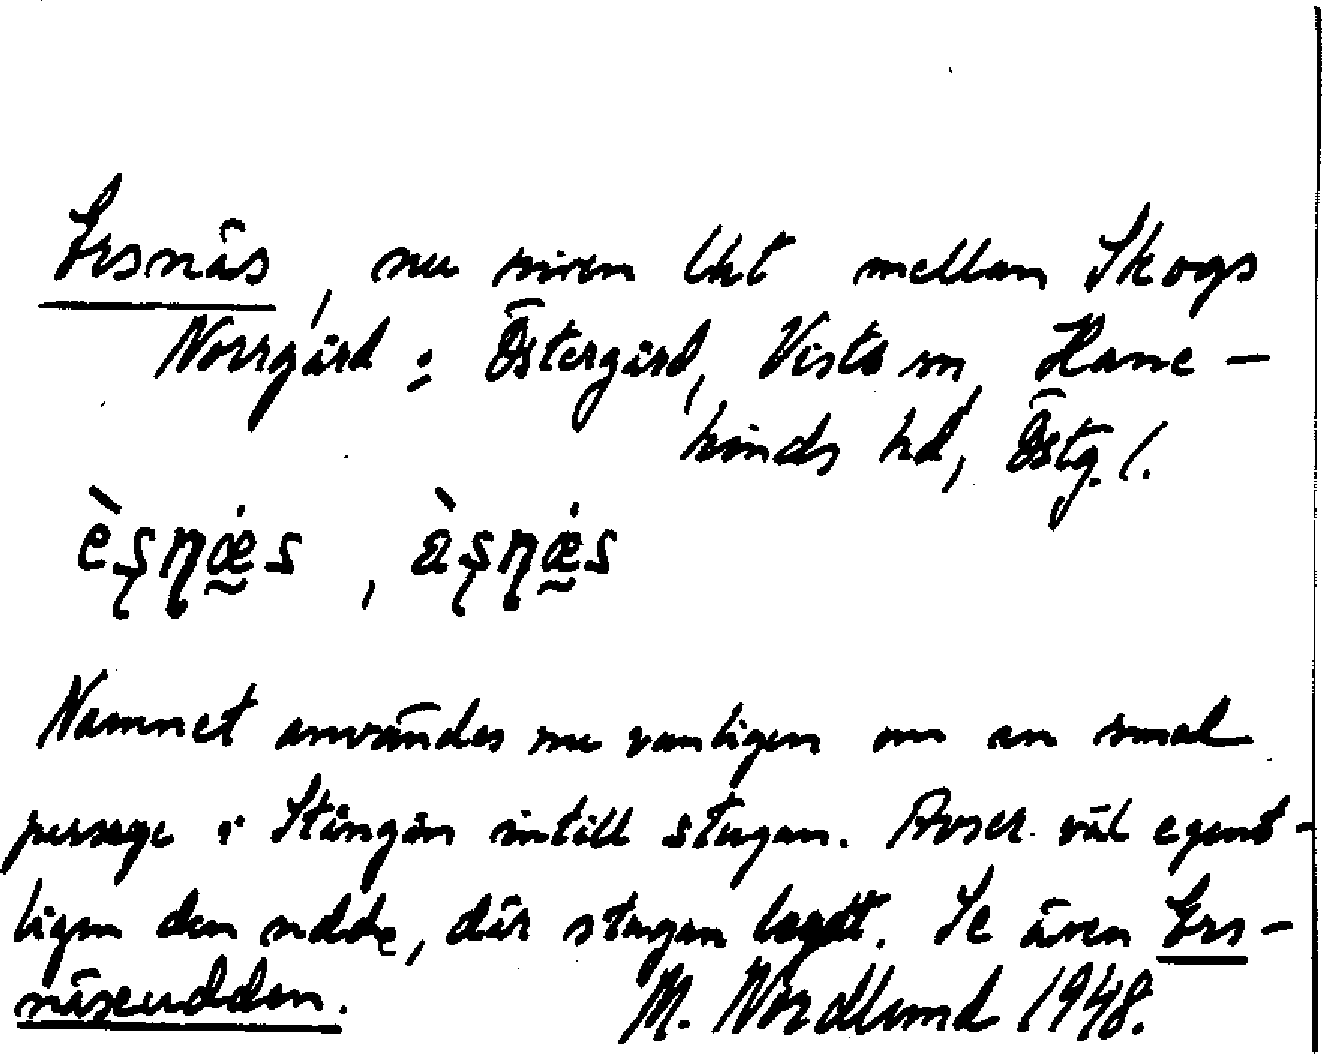 Ersnäs, nu riven lht mellan Skogs
Norrgård o. Östergård, Vists sn, Hane-
kinds hd, Östg. l.
èʂɳæ̣s, àʂɳæ̣s
Namnet användes nu vanligen om en smal
passage i Stångån intill stugan. Avser väl egent-
ligen den udde, där stugan legat. Se även Ers-
näseudden. M. Nordlund 1948.